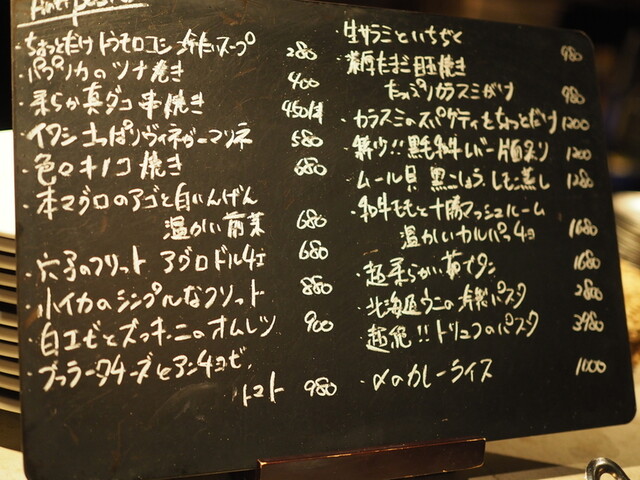 Antipasto
・ちょっとだけトウモロコシ冷たいスープ 280
・パプリカのツナ巻き 400
・柔らか真ダコ串焼き 450/本
・イワシ さっぱりヴィネガーマリネ 580
・色々キノコ焼き 680
・本マグロのアゴと白いんげん
温かい前菜 680
・穴子のフリット アグロドルチェ 680
・小イカのシンプルなフリット 880
・白エビとズッキーニのオムレツ 900
・ブッラータチーズとアンチョビ、
トマト 980
・生サラミといちじく 980
たまご目玉焼き
たっぷりカラスミがけ 980
・カラスミのスパゲティをちょっとだけ 1200
黒毛和牛レバー 1200
・ムール貝 黒こしょう レモン蒸し 1280
・和牛モモと十勝マッシュルーム
温かいカルパッチョ 1680
・超柔らかい茹でタン 1680
・北海道ウニの冷製パスタ 2800
・超絶!!トリュフのパスタ 3980
・〆のカレーライス 1000